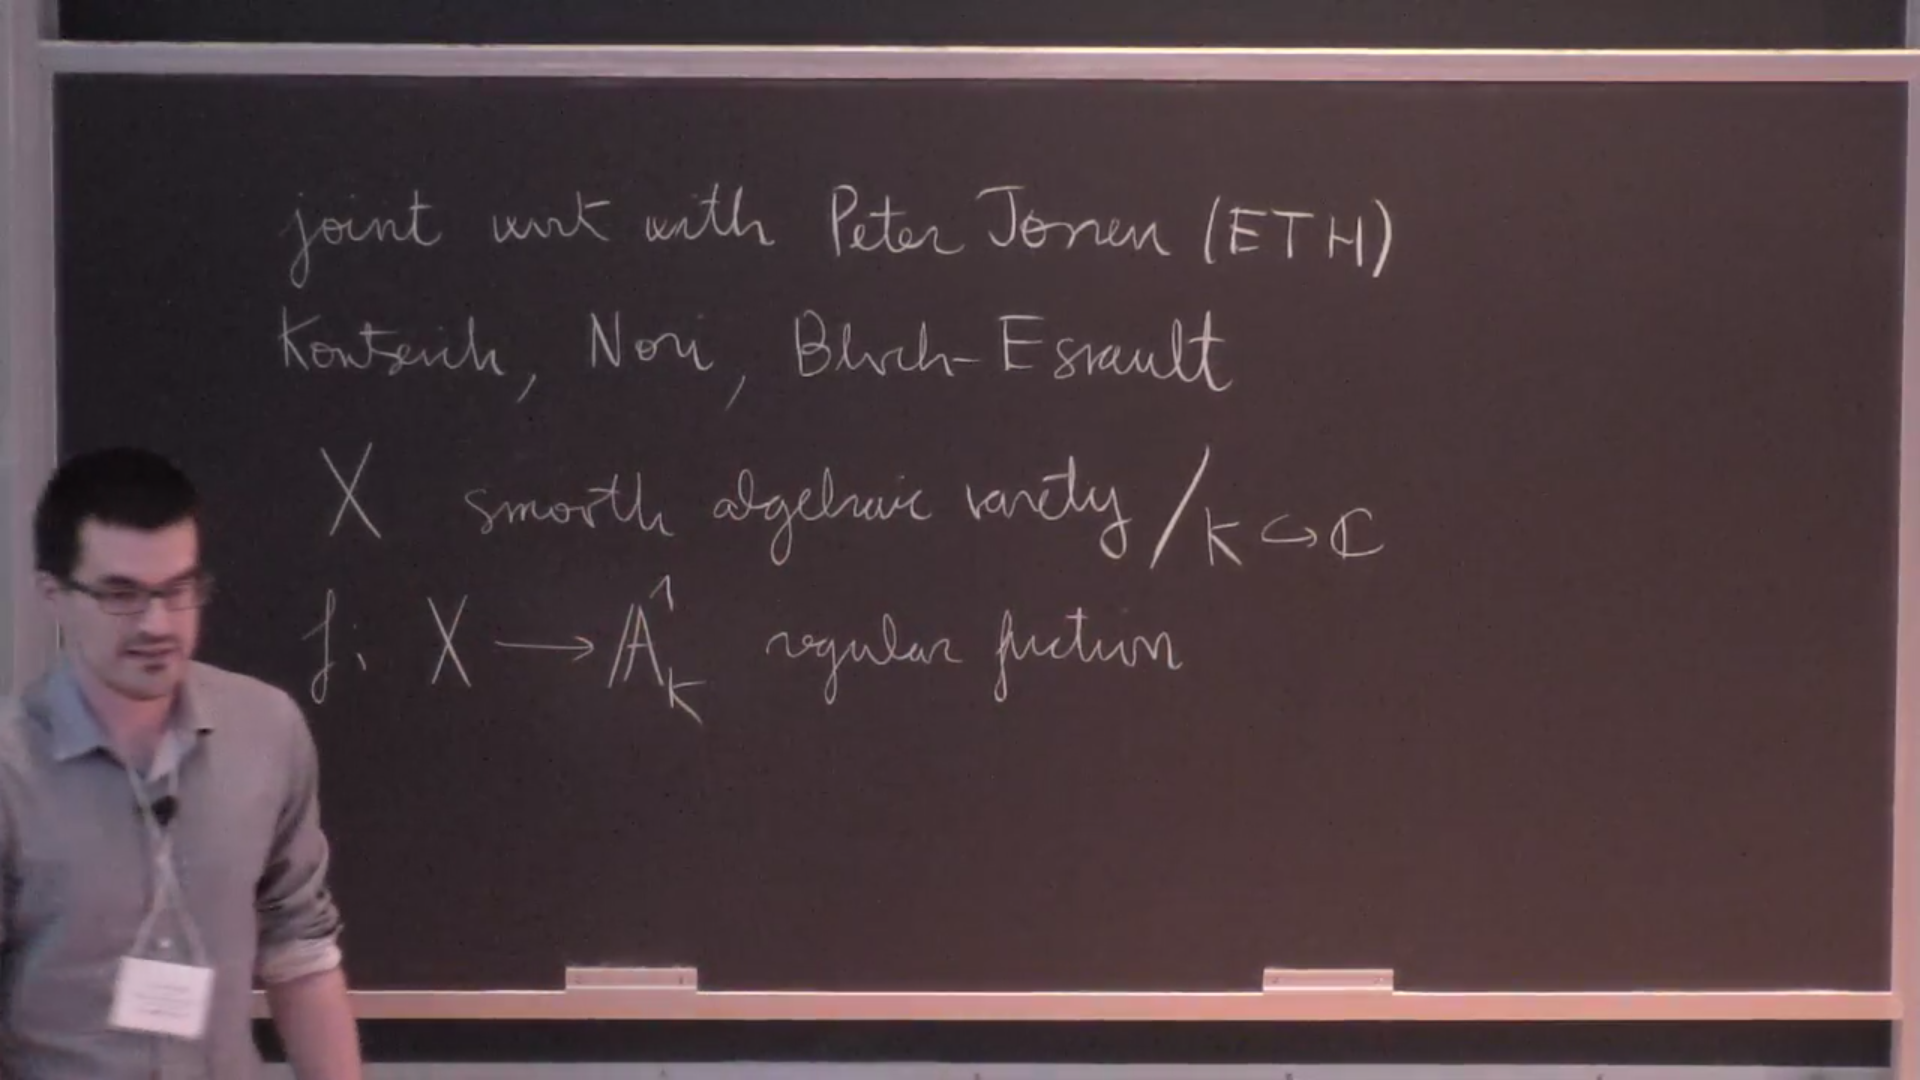 joint work with Peter Jossen (ETH)
Kontsevich, Nori, Bloch-Esnault
X smooth algebraic variety / k ↪ ℂ
f: X ⟶ 𝔸¹ₖ regular function